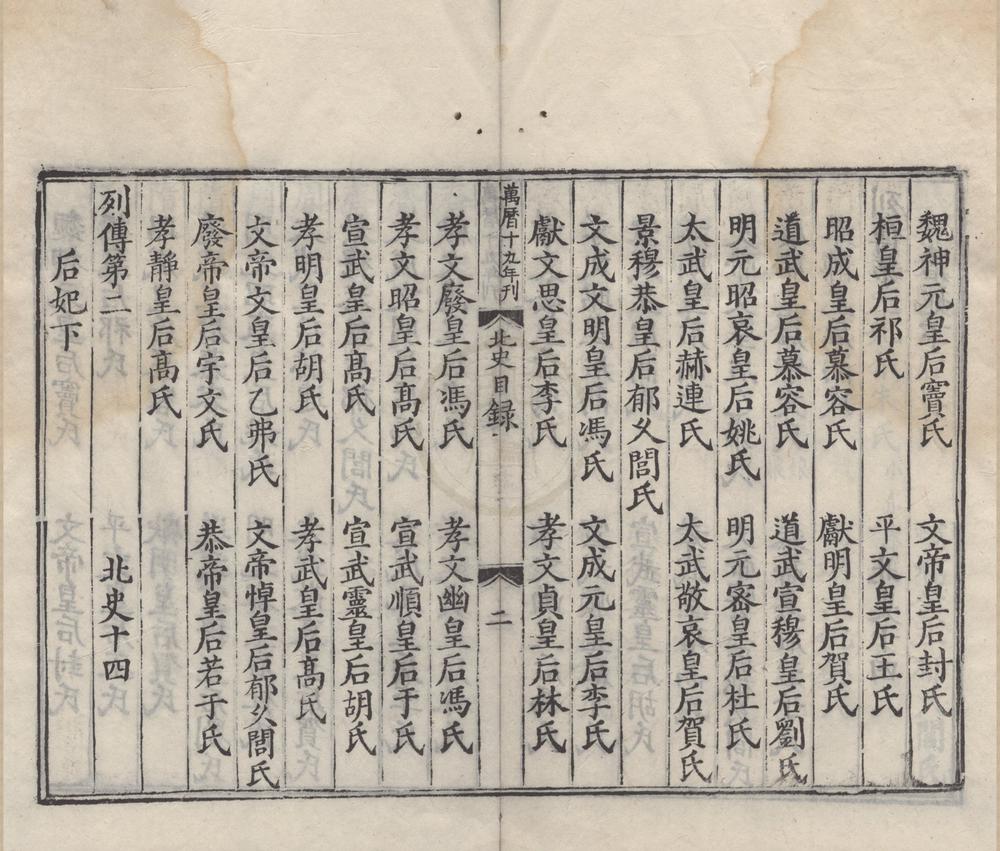 魏神元皇后竇氏　文帝皇后封氏
桓皇后祁氏　平文皇后王氏
昭成皇后慕容氏　獻明皇后賀氏
道武皇后慕容氏　道武宣穆皇后劉氏
明元昭哀皇后姚氏　明元密皇后杜氏
太武皇后赫連氏　太武敬哀皇后賀氏
景穆恭皇后郁久閭氏
文成文明皇后馮氏　文成元皇后李氏
獻文思皇后李氏　孝文貞皇后林氏
萬曆十九年刊
北史目錄
二
孝文廢皇后馮氏　孝文幽皇后馮氏
孝文昭皇后髙氏　宣武順皇后于氏
宣武皇后髙氏　宣武靈皇后胡氏
孝明皇后胡氏　孝武皇后髙氏
文帝文皇后乙弗氏　文帝悼皇后郁久閭氏
廢帝皇后宇文氏　恭帝皇后若干氏
孝靜皇后髙氏
列傳第二　北史十四
后妃下